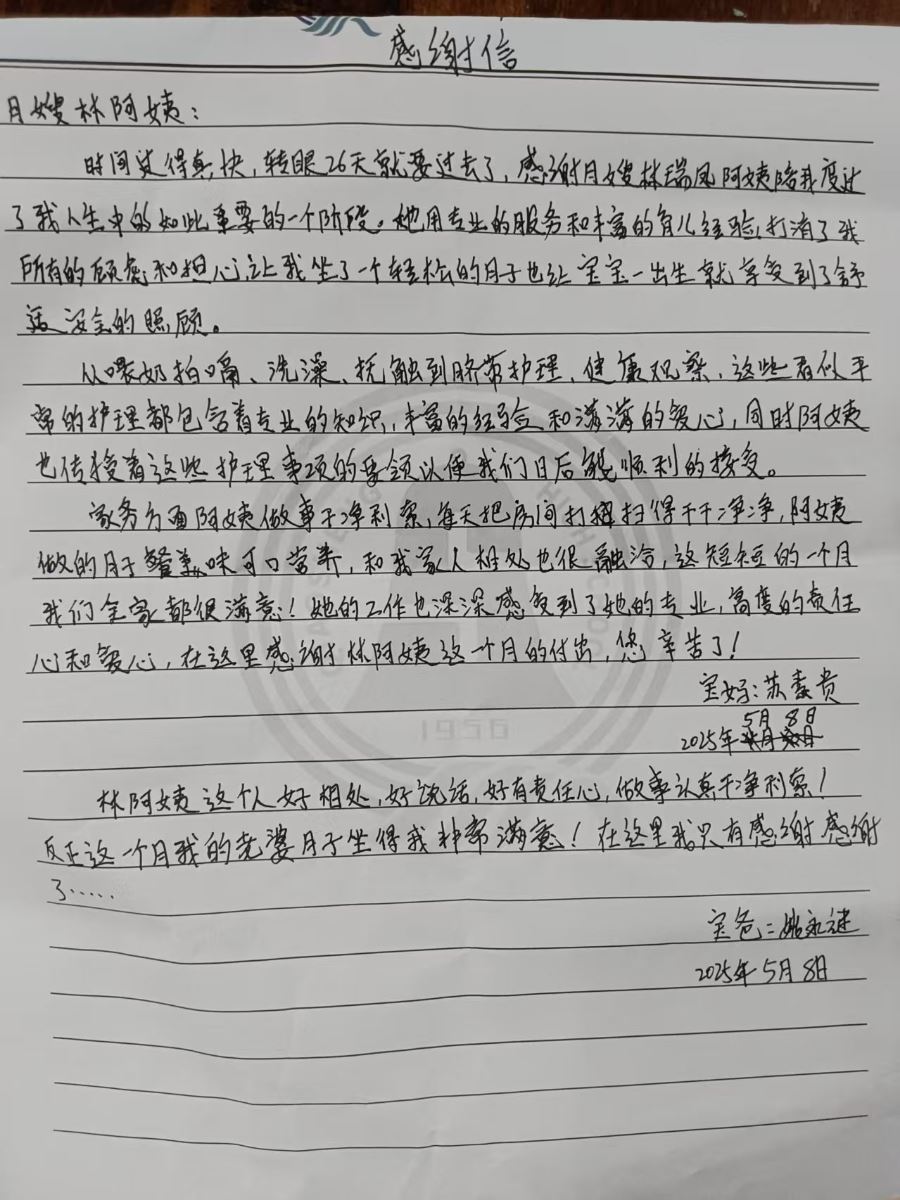 感谢信
月嫂林阿姨：
时间过得真快，转眼26天就要过去了，感谢月嫂林瑞凤阿姨陪我度过
了我人生中的如此重要的一个阶段。她用专业的服务和丰富的育儿经验，打消了我
所有的顾虑和担心，让我坐了一个轻松的月子也让宝宝一出生就享受到了舒
适安全的照顾。
从喂奶拍嗝、洗澡、抚触到脐带护理、健康观察，这些看似平
常的护理都包含着专业的知识，丰富的经验和满满的爱心，同时阿姨
也传授着这些护理事项的要领以便我们日后能顺利的接受。
家务方面阿姨做事干净利索，每天把房间打扫得干干净净，阿姨
做的月子餐美味可口营养，和我家人相处也很融洽，这短短的一个月
我们全家都很满意！她的工作也深深感受到了她的专业，高度的责任
心和爱心，在这里感谢林阿姨这一个月的付出，您辛苦了！
宝妈：苏贵
5月8日
2025年
林阿姨这个人好相处，好说话，好有责任心，做事认真干净利索！
反正这一个月我的老婆月子坐得我非常满意！在这里我只有感谢感谢
了……
宝爸：姚永
2025年5月8日
1956